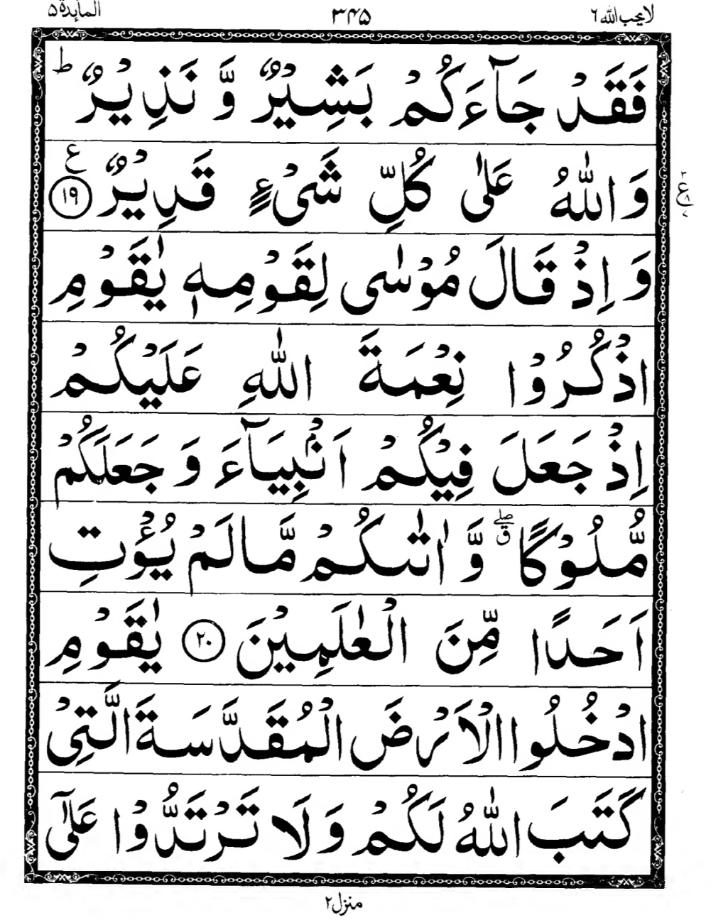 لایحب الله ٦ ٣٤٥ المآئدة ٥
فَقَدْ جَآءَكُمْ بَشِيْرٌ وَّ نَذِيْرٌ ؕ
وَاللّٰهُ عَلٰى كُلِّ شَىْءٍ قَدِيْرٌ ࣖ ﴿١٩﴾
وَ اِذْ قَالَ مُوْسٰى لِقَوْمِهٖ يٰقَوْمِ
اذْكُرُوْا نِعْمَةَ اللّٰهِ عَلَيْكُمْ
اِذْ جَعَلَ فِيْكُمْ اَنْۢبِيَآءَ وَ جَعَلَكُمْ
مُّلُوْكًا ۗۖ وَّ اٰتٰىكُمْ مَّا لَمْ يُؤْتِ
اَحَدًا مِّنَ الْعٰلَمِيْنَ ﴿٢٠﴾ يٰقَوْمِ
ادْخُلُوا الْاَرْضَ الْمُقَدَّسَةَ الَّتِىْ
كَتَبَ اللّٰهُ لَكُمْ وَلَا تَرْتَدُّوْا عَلٰٓى
منزل ٢